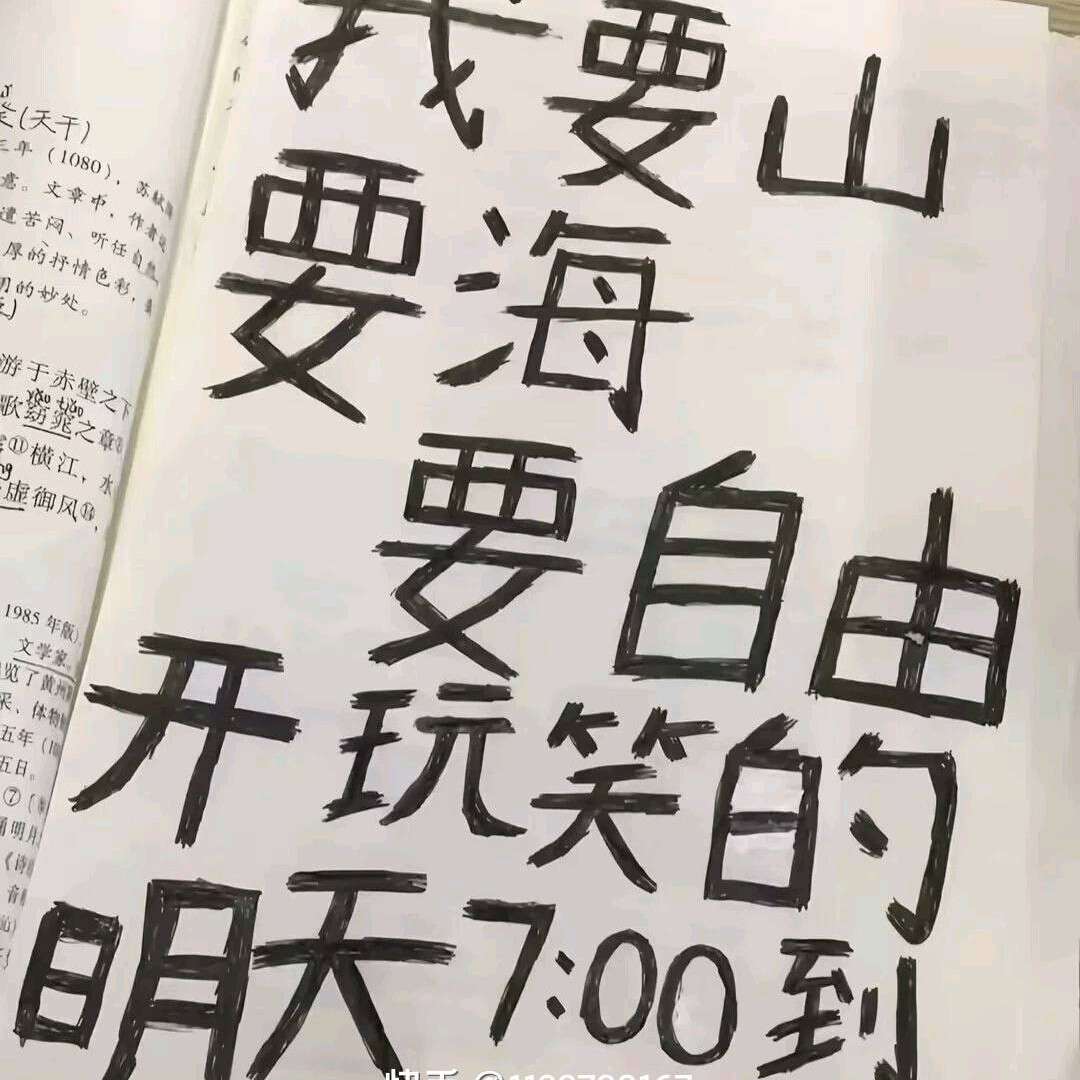 我要山
要海
要自由
开玩笑的
明天7:00到
(天干)
三年(1080),苏轼
意。文章中,作者
遣苦闷、听任自然
厚的抒情色彩,
的妙处。
游于赤壁之下
yǎo tiǎo
歌窈窕之章
⑪横江,水
虚御风
1985年版)
文学家
览了黄州
采、体物
五年(1
五日。
⑦
诵明月
《诗
音
快手